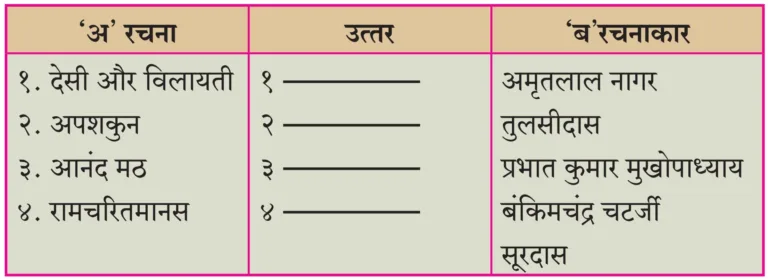 ‘अ’ रचना उत्तर ‘ब’रचनाकार
१. देसी और विलायती १ अमृतलाल नागर
२. अपशकुन २ तुलसीदास
३. आनंद मठ ३ प्रभात कुमार मुखोपाध्याय
४. रामचरितमानस ४ बंकिमचंद्र चटर्जी
सूरदास